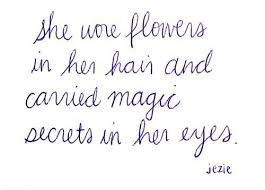 She wore flowers
in her hair and
carried magic
secrets in her eyes.
jezie